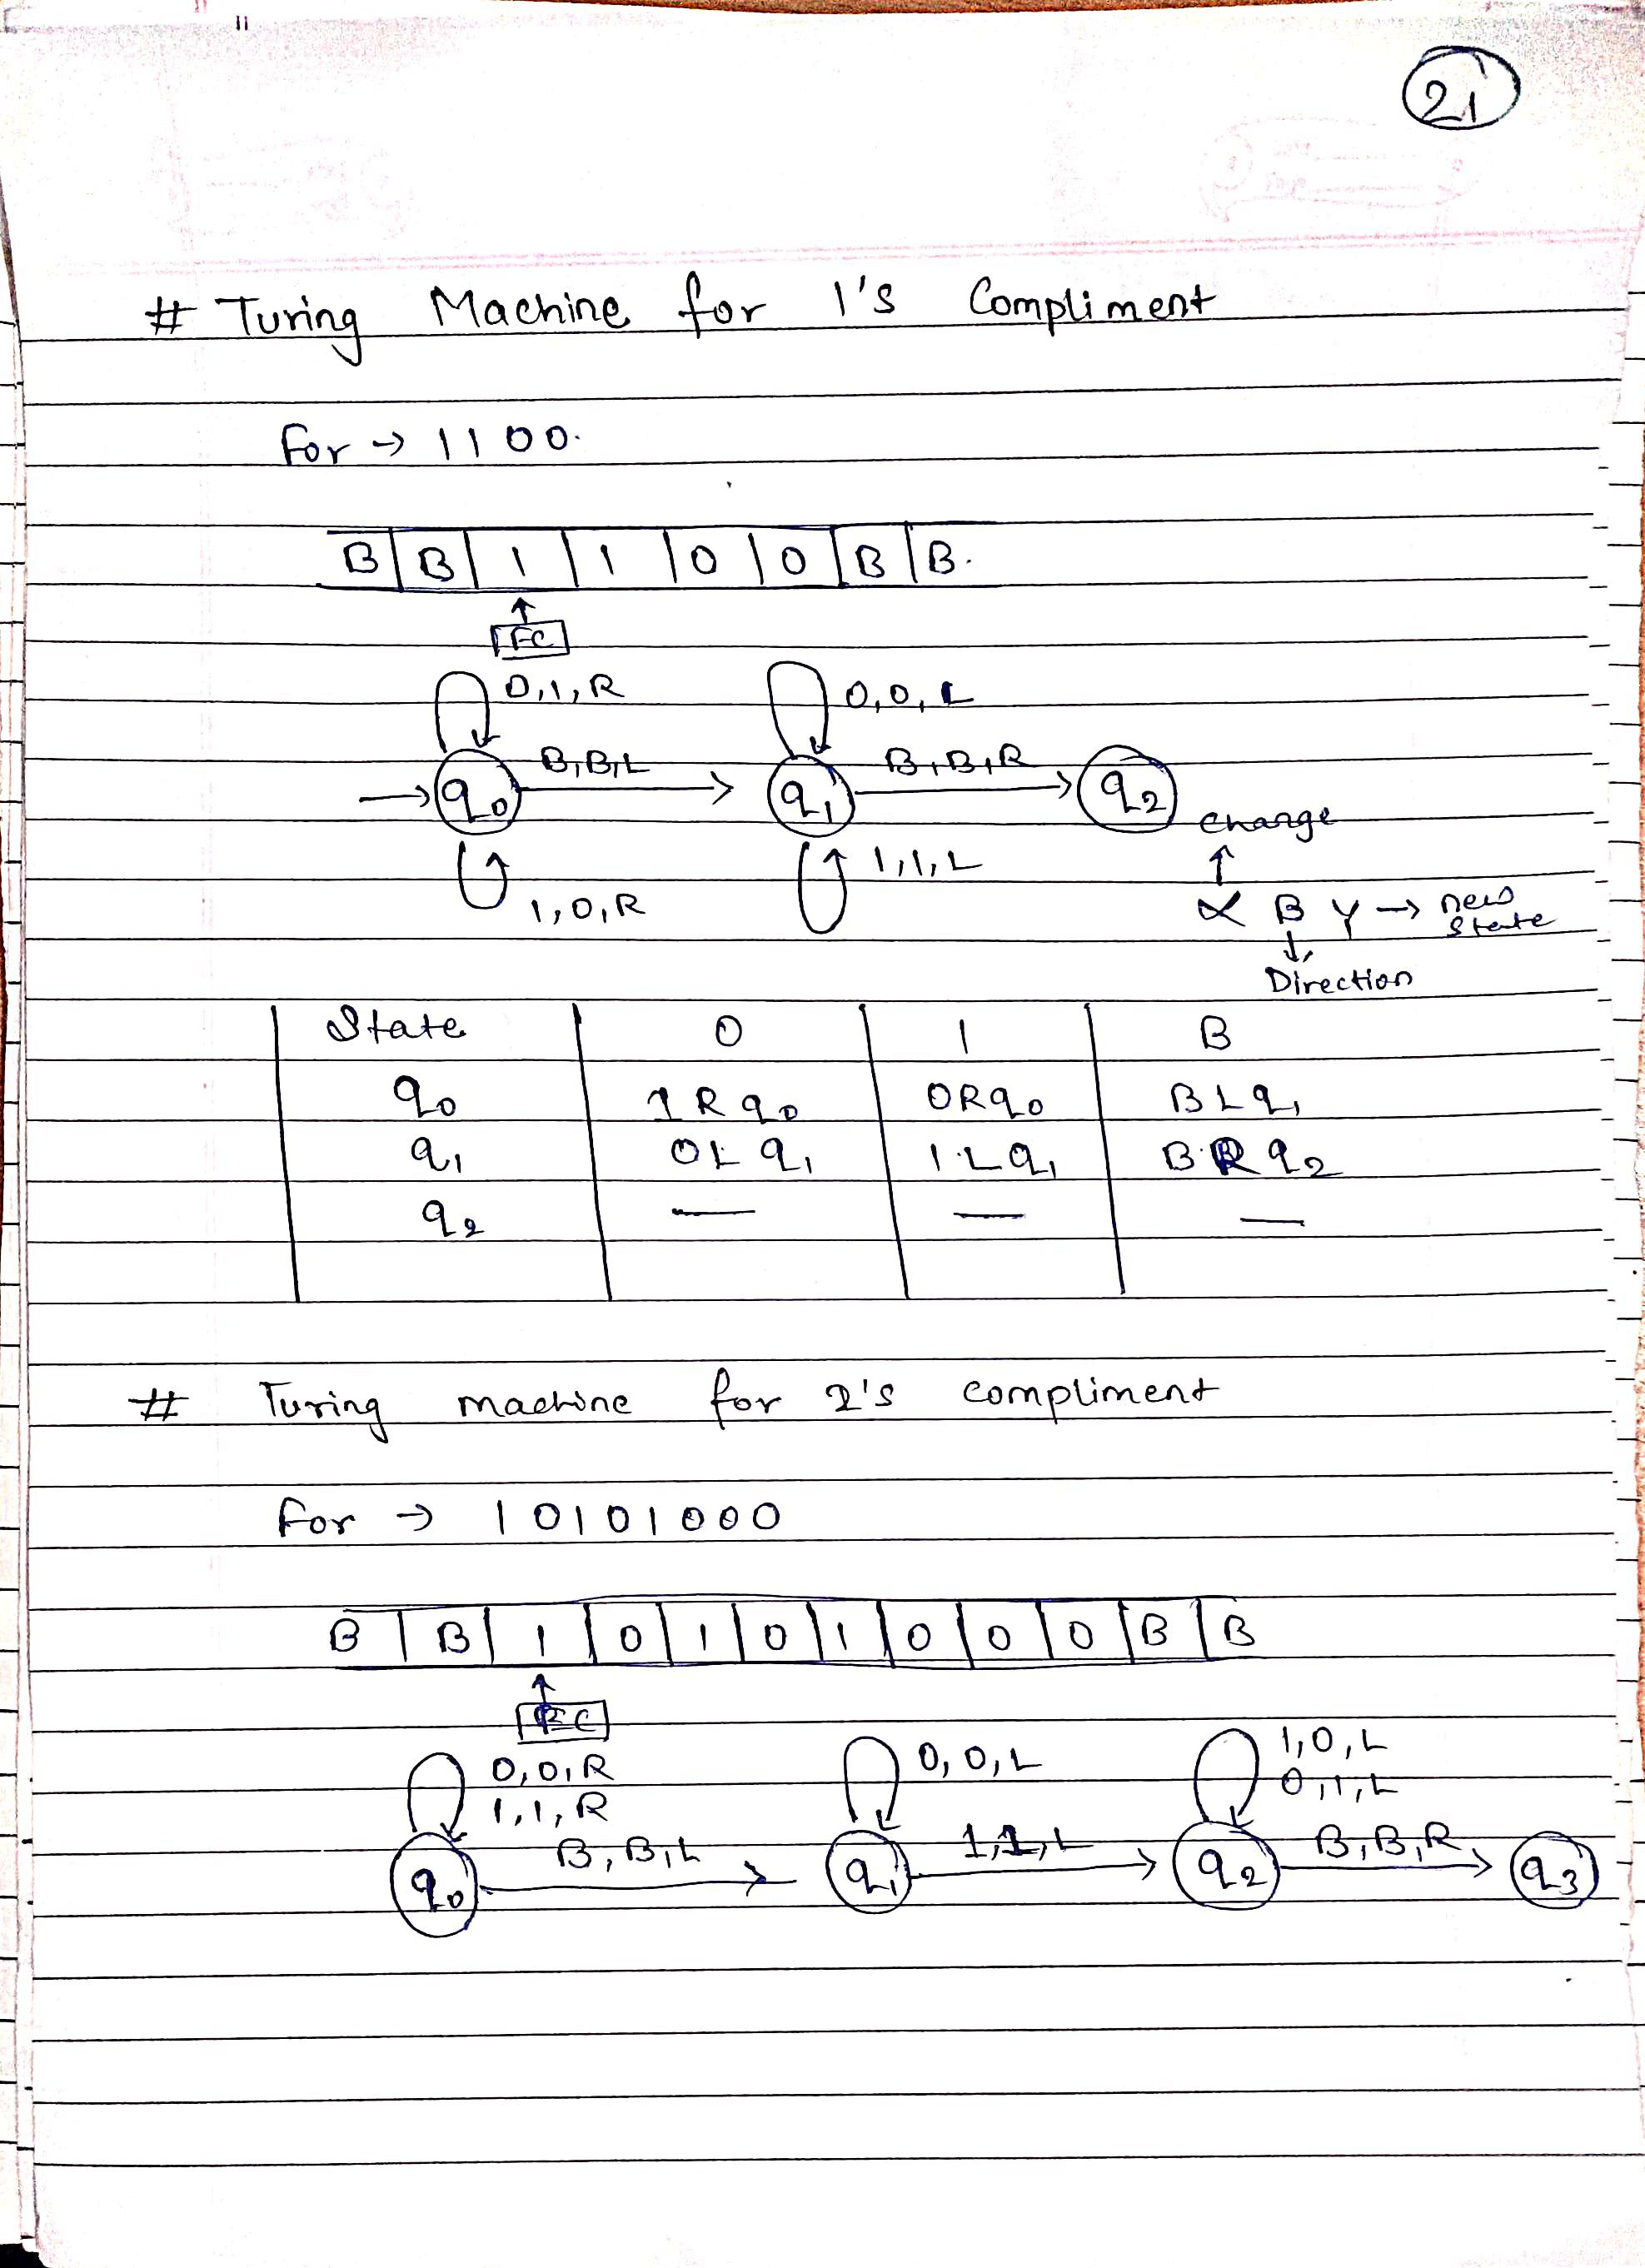 21
# Turing Machine for 1's Compliment
For → 1100.
B | B | 1 | 1 | 0 | 0 | B | B.
FC
0,1,R 0,0,L
B,B,L B,B,R
→ q0 q1 q2
Change
1,0,R 1,1,L
α B γ → new State
Direction
State 0 1 B
q0 1Rq0 0Rq0 BLq1
q1 0Lq1 1Lq1 BRq2
q2 — — —
# Turing machine for 2's compliment
For → 10101000
B | B | 1 | 0 | 1 | 0 | 1 | 0 | 0 | 0 | B | B
0,0,R 0,0,L 1,0,L
1,1,R 0,1,L
B,B,L 1,1,L B,B,R
q0 q1 q2 q3